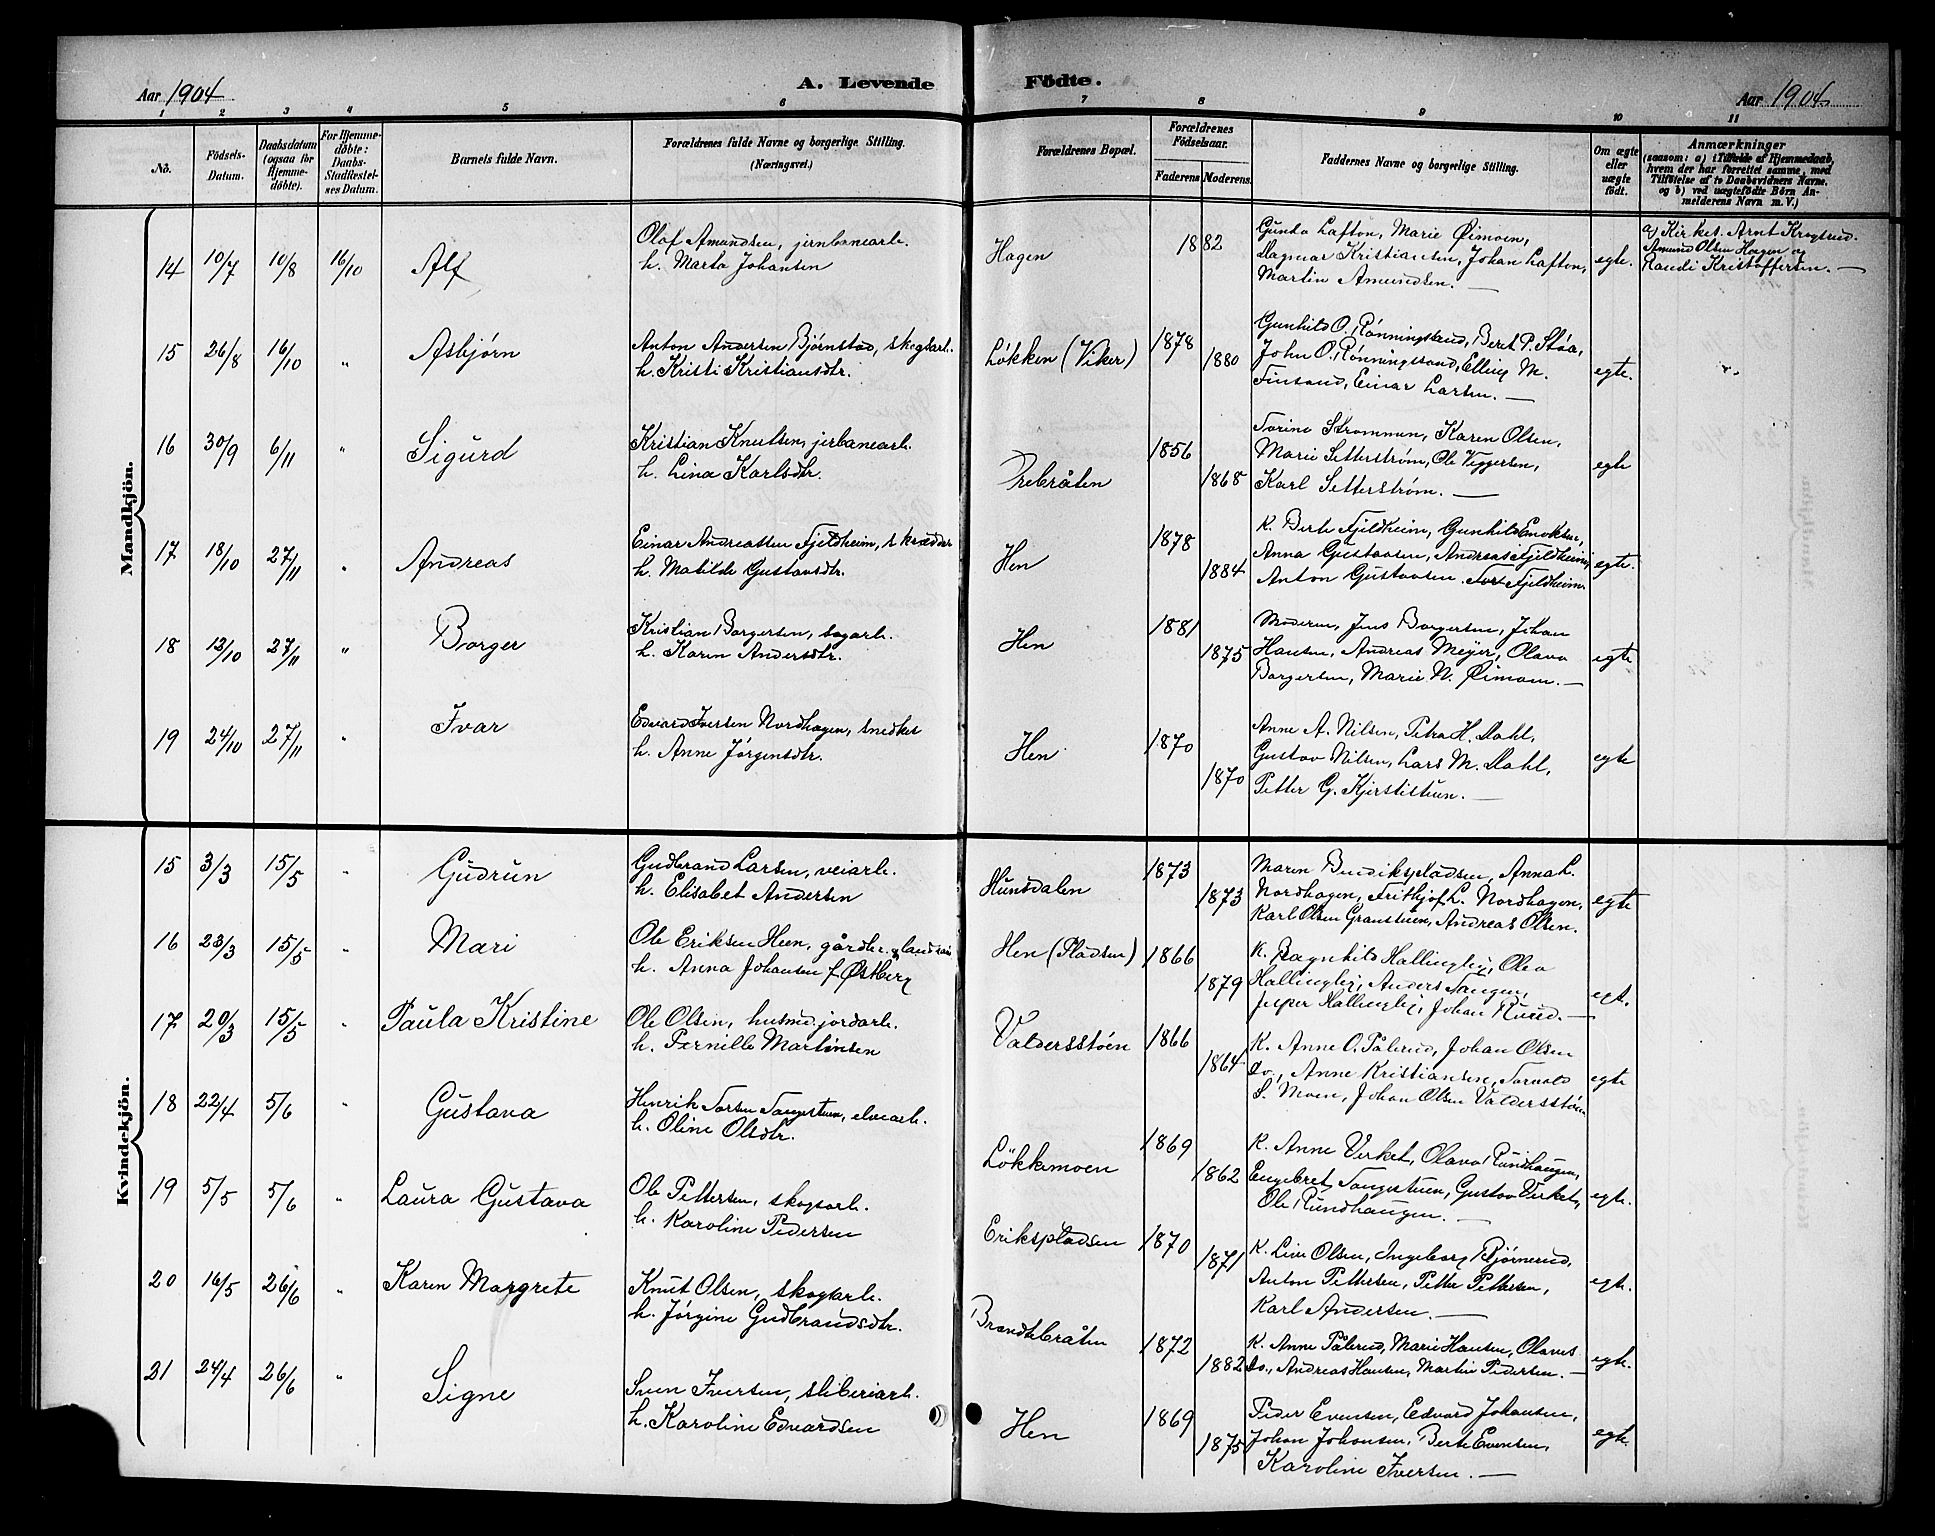 Aar 1904
A. Levende
Födte.
Aar 1904
1 2 3 4 5 6 7 8 9 10 11
No.
Födsels-Datum.
Daabsdatum (ogsaa för Hjemme-döbte).
For Hjemme-döbte: Daabs-Stadfæstel-ses Datum.
Barnets fulde Navn.
Forældrenes fulde Navne og borgerlige Stilling. (Næringsvei.)
Forældrenes Bopæl.
Forældrenes Födselsaar.
Faderens. Moderens.
Faddernes Navne og borgerlige Stilling.
Om ægte eller uægte födt.
Anmærkninger
(saasom: a) i Tilfælde af Hjemmedaab,
hvem der har forrettet samme, med
Tilföielse af to Daabsvidners Navne,
og b) ved uægtefödte Börn An-
melderens Navn m. V.)
Mandkjön.
14 10/7 10/8 16/10 Alf
Olaf Amundsen, jernbanearb.
h. Marta Johansen
Hagen
1882
Gunda Lafton, Marie Øimoen,
Dagmar Kristiansen, Johan Lafton,
Martin Amundsen. —
egte.
a) Kirkes. Arnt Krogsrud.
Amund Olsen Hagen og
Randi Kristoffersen. —
15 26/8 16/10 " Asbjørn
Anton Andersen Bjørnstad, skogsarb.
h. Kristi Kristiansdtr.
Løkken (Viker)
1878
1880
Gunhild O. Rønningsand, Beret P. Støa,
John O. Rønningsand, Elling M.
Finsand, Einar Larsen. —
egte.
16 30/9 6/11 " Sigurd
Kristian Knutsen, jerbanearb.
h. Lina Karlsdtr.
Prebråten
1856
1868
Torine Strømmen, Karen Olsen,
Marie Setterstrøm, Ole Viggersen,
Karl Setterstrøm. —
egte
17 18/10 27/11 " Andreas
Einar Andreassen Fjeldheim, skrædder
h. Matilde Gustavsdtr.
Hen
1878
1884
K. Berte Fjeldheim, Gunhild Enoksen,
Anna Gustavsen, Andreas Fjeldheim,
Anton Gustavsen. Tore Fjeldheim.
egte.
18 12/10 27/11 " Borger
Kristian Borgersen, sagarb.
h. Karen Andersdtr.
Hen
1881
1875
Moderen, Jens Borgersen, Johan
Hansen, Andreas Meyer, Olava
Borgersen, Marie N. Øimoen. —
egte
19 24/10 27/11 " Ivar
Edvard Iversen Nordhagen, snedker
h. Anne Jørgensdtr.
Hen
1870
1870
Anne A. Nilsen, Petra H. Dahl,
Gustav Nilsen, Lars M. Dahl,
Petter G. Kjerstistuen. —
egte
Kvindekjön.
15 3/3 15/5 " Gudrun
Gudbrand Larsen, veiarb.
h. Elisabet Andersen
Hunsdalen
1873
1873
Maren Bendikspladsen, Anna L.
Nordhagen, Frithjof L. Nordhagen,
Karl Olsen Granstuen, Andreas Olsen.
egte
16 23/3 15/5 " Mari
Ole Eriksen Heen, gårdbr.
h. Anna Johansen f. Østberg
Hen (Pladsen)
1866
1879
K. Ragnhild Hallingby, Olea
Hallingby, Anders Tangen,
Jesper Hallingby, Johan Ruud. —
egt.
17 20/3 15/5 " Paula Kristine
Ole Olsen, husmd. jordarb.
h. Pernille Martinsen
Valdersstøen
1866
1864
K. Anne O. Pålerud, Johan Olsen
do., Anne Kristiansen, Torvald
S. Moen, Johan Olsen Valdersstøen
egte
18 22/4 5/6 " Gustava
Henrik Torsen Tangestuen, elvearb.
h. Oline Olsdtr.
Løkkemoen
1869
1862
K. Anne Virket, Olava Rundhaugen,
Engebret Tangestuen, Gustav Virket,
Ole Rundhaugen. —
egte.
19 5/5 5/6 " Laura Gustava
Ole Pettersen, skogsarb.
h. Karoline Pedersen
Erikspladsen
1870
1871
K. Live Olsen, Ingeborg Bjørnerud,
Anton Pettersen, Petter Pettersen,
Karl Andersen. —
egte.
20 16/5 26/6 " Karen Margrete
Knut Olsen, skogsarb.
h. Jørgine Gudbrandsdtr.
Brændebråten
1872
1882
K. Anne Pålerud, Marie Hansen, Olaves
do., Andreas Hansen, Martin Pedersen. —
egte.
21 24/4 26/6 " Signe
Sven Iversen, sliberiarb.
h. Karoline Edvardsen
Hen
1869
1875
Peder Evensen, Edvard Johansen,
Johan Johansen, Berte Evensen,
Karoline Iversen. —
egte.